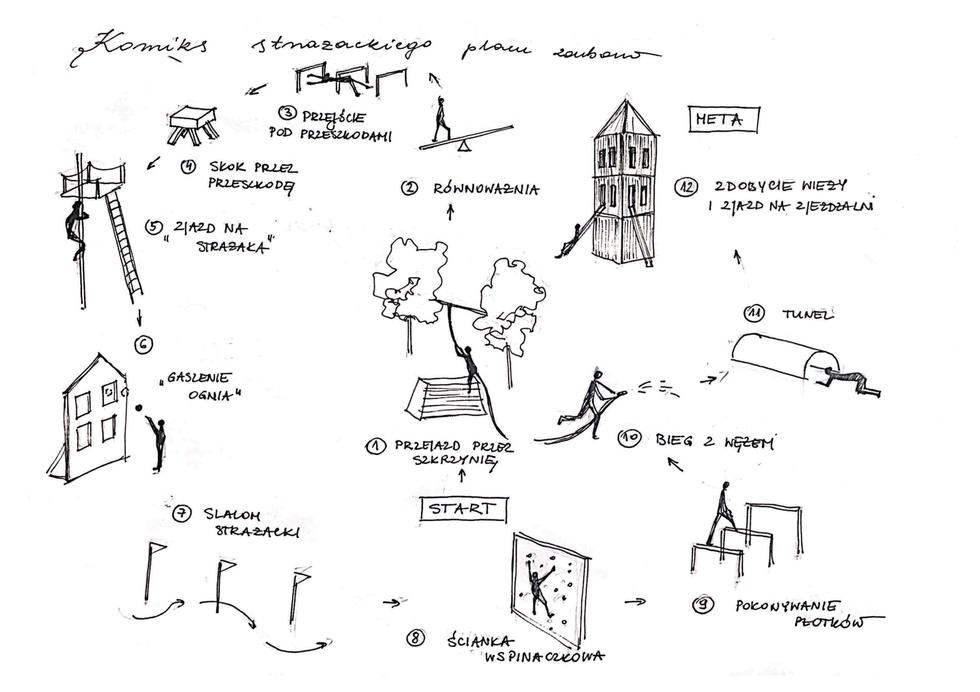 Komiks strażackiego placu zabaw
START
1 PRZEJAZD PRZEZ
SZKRZYNIĘ
2 RÓWNOWAŻNIA
3 PRZEJŚCIE
POD PRZESZKODAMI
4 SKOK PRZEZ
PRZESZKODĘ
5 ZJAZD NA
"STRAŻAKA"
6
"GASZENIE
OGNIA"
7 SLALOM
STRAŻACKI
8 ŚCIANKA
WSPINACZKOWA
9 POKONYWANIE
PŁOTKÓW
10 BIEG Z WĘŻEM
11 TUNEL
12 ZDOBYCIE WIEŻY
I ZJAZD NA ZJEŻDŻALNI
META